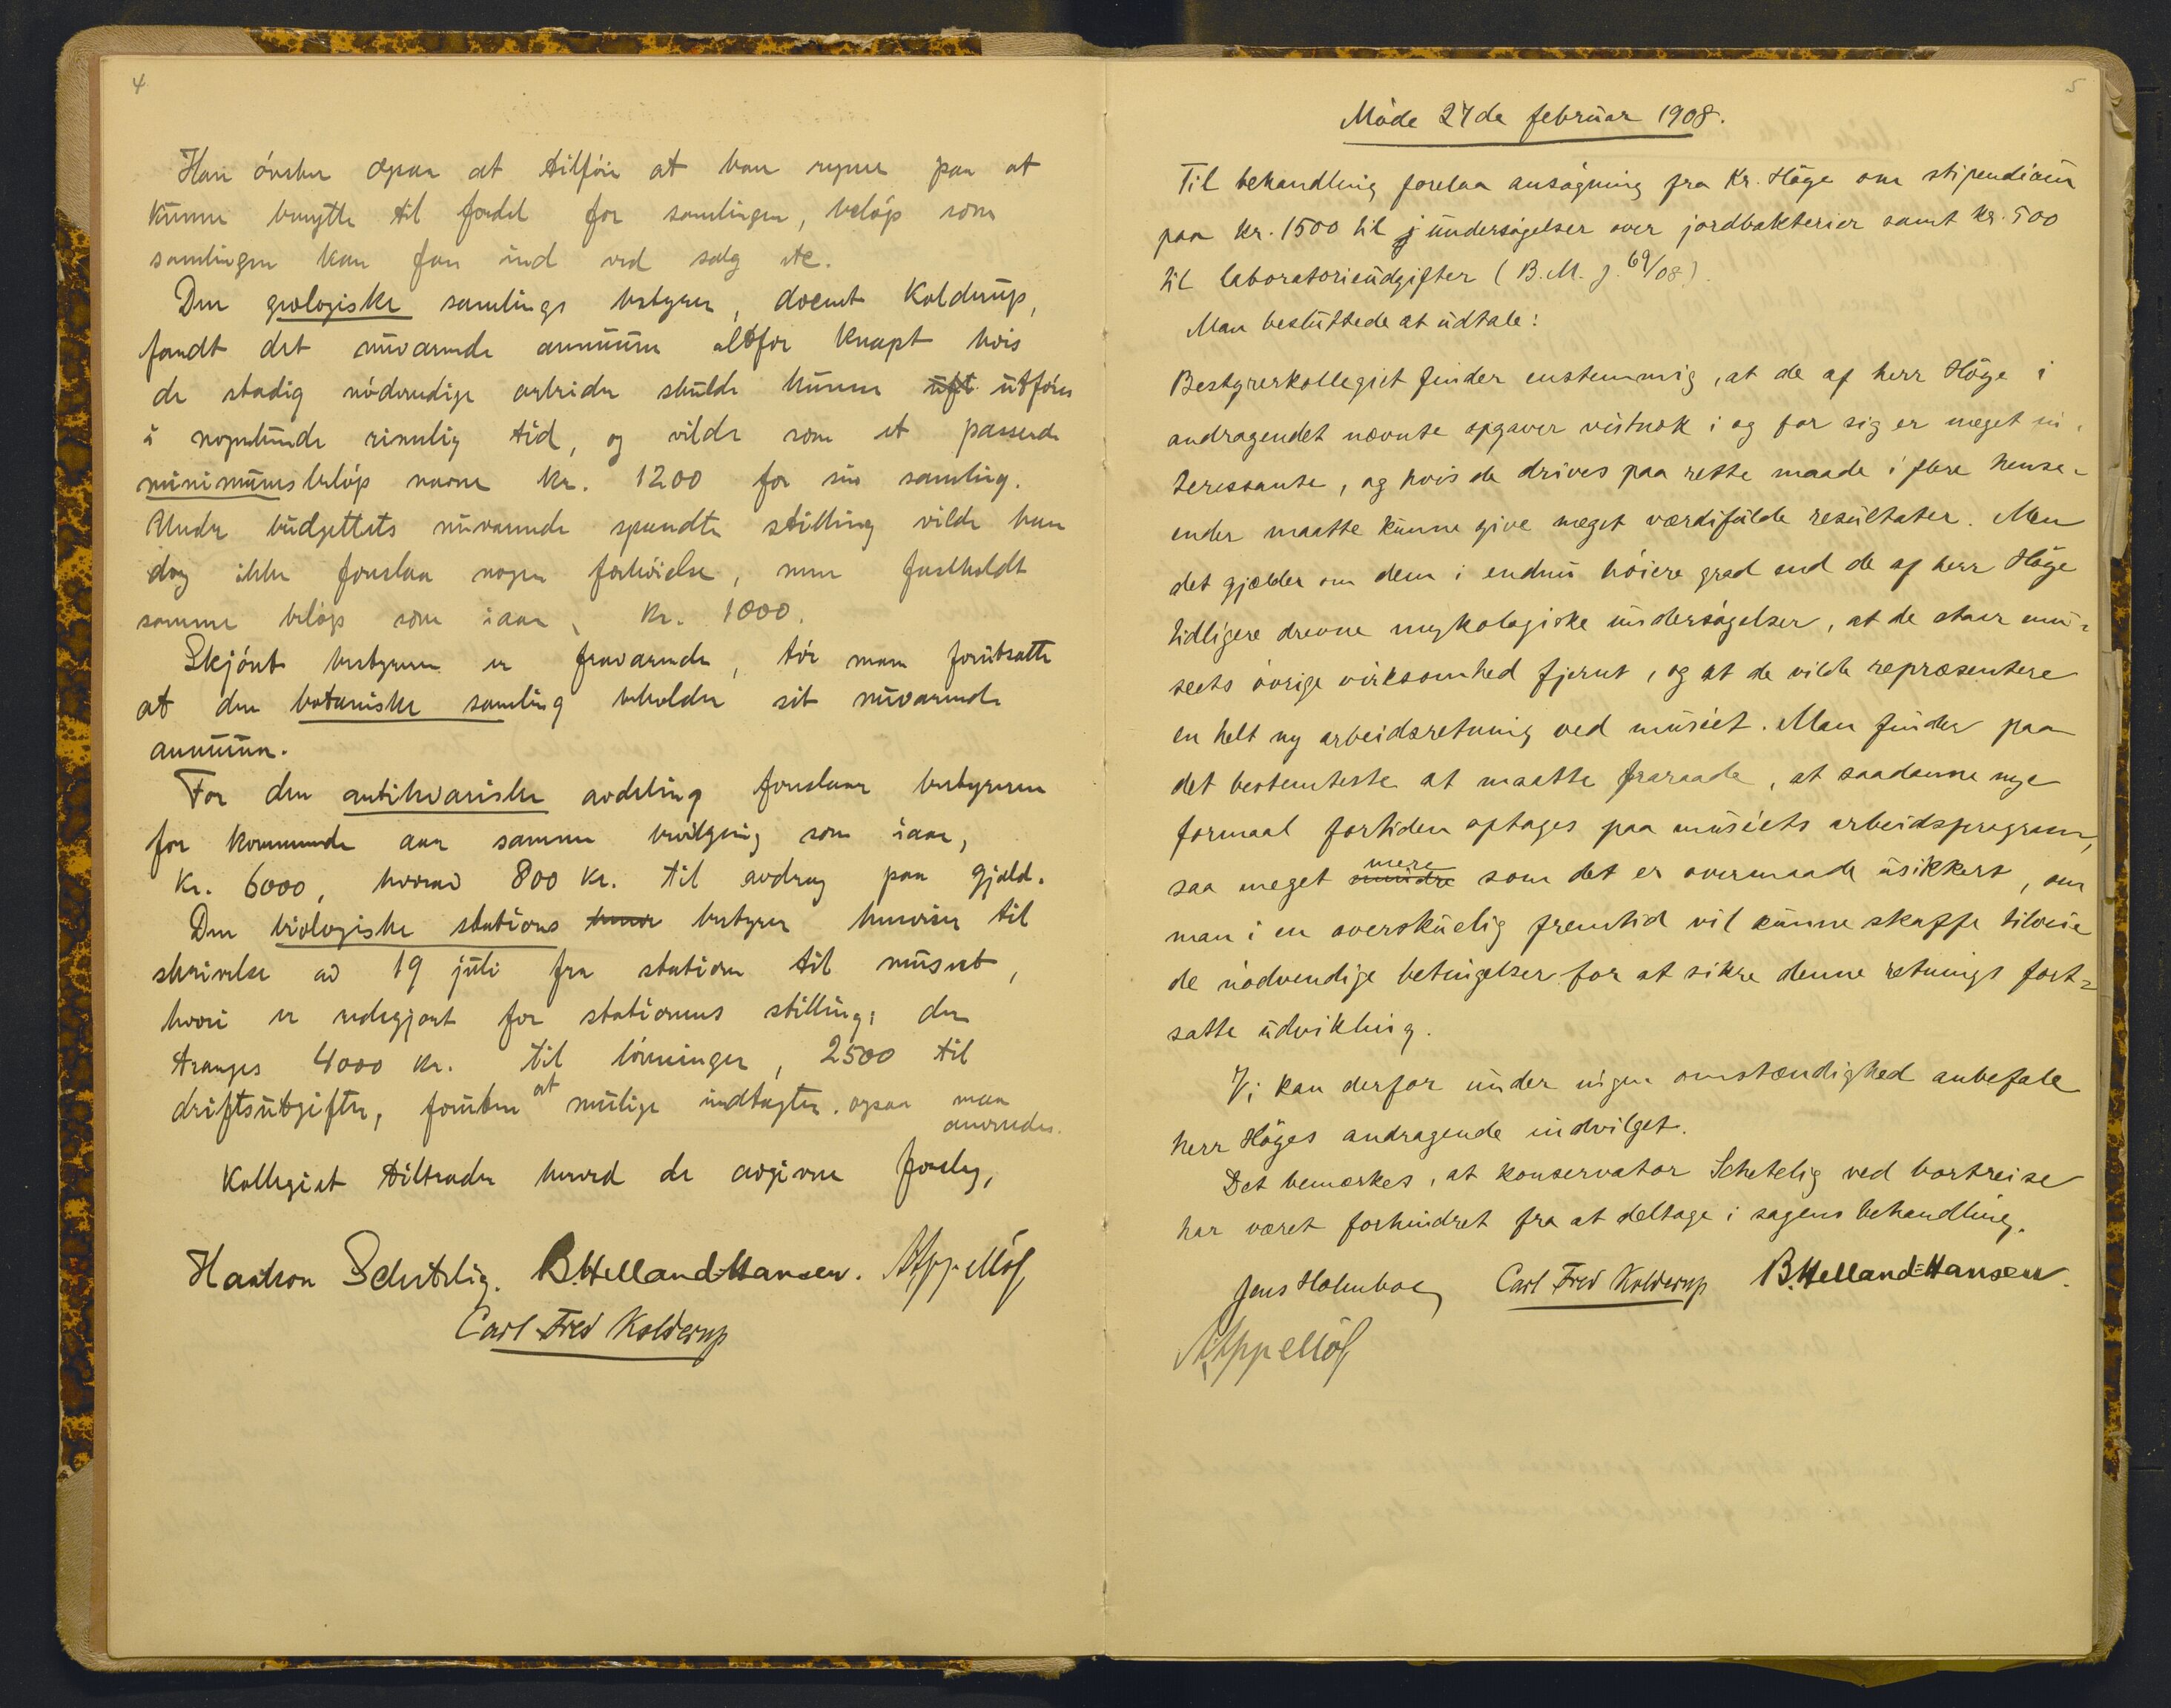 4
Han ønsker ogsaa at tilføie at han regner paa at
kunne benytte til fordel for samlingen, beløp som
samlingen kan faa ind ved salg etc.
Den geologiske samlings bestyrer, docent Kolderup,
fandt det nuværende annuum altfor knapt hvis
de stadig nødvendige arbeider skulde kunne uft utføres
i nogenlunde rimelig tid, og vilde som et passende
minimumsbeløp nævne kr. 1200 for sin samling.
Under budgettets nuværende spændte stilling vilde han
dog ikke foreslaa nogen forhøielse, men fastholdt
samme beløp som iaar, kr. 1000.
Skjønt bestyreren er fraværende, tør man forutsætte
at den botaniske samling beholder sit nuværende
annuum.
For den antikvariske avdeling foreslaar bestyreren
for kommende aar samme bevilgning som iaar,
kr. 6000, hvorav 800 kr. til avdrag paa gjæld.
Den biologiske stations bestyrer henviser til
skrivelse av 19 juli fra stationen til museet,
hvori er redegjort for stationens stilling; der
trænges 4000 kr. til lønninger, 2500 til
driftsutgifter, foruten at mulige indtægter ogsaa maa
anvendes.
Kollegiet tiltræder herved de avgivne forslag.
Haakon Schetelig. B. Helland-Hansen. A. Appellöf
Carl Fred Kolderup
5
Møde 27de februar 1908.
Til behandling forelaa ansøgning fra Kr. Høye om stipendium
paa kr. 1500 til j undersøgelser over jordbakterier samt kr. 500
til laboratorieudgifter (B. M. j. 69/08).
Man besluttede at udtale:
Bestyrerkollegiet finder enstemmig, at de af herr Høye i
andragendet nævnte opgaver vistnok i og for sig er meget in-
teressante, og hvis de drives paa rette maade i flere hense-
ender maatte kunne give meget værdifulde resultater. Men
det gjælder om dem i endnu høiere grad end de af herr Høye
tidligere drevne mykologiske undersøgelser, at de staar mu-
seets øvrige virksomhed fjernt, og at de vilde repræsentere
en helt ny arbeidsretning ved museet. Man finder paa
det bestemteste at maatte fraraade, at saadanne nye
formaal fortiden optages paa museets arbeidsprogram,
saa meget mindre mere som det er overmaade usikkert, om
man i en overskuelig fremtid vil kunne skaffe tilveie
de nødvendige betingelser for at sikre denne retnings fort-
satte udvikling.
Vi kan derfor under ingen omstændighed anbefale
herr Høyes andragende indvilget.
Det bemærkes, at konservator Schetelig ved bortreise
har været forhindret fra at deltage i sagens behandling.
Jens Holmboe Carl Fred Kolderup B. Helland-Hansen.
A. Appellöf